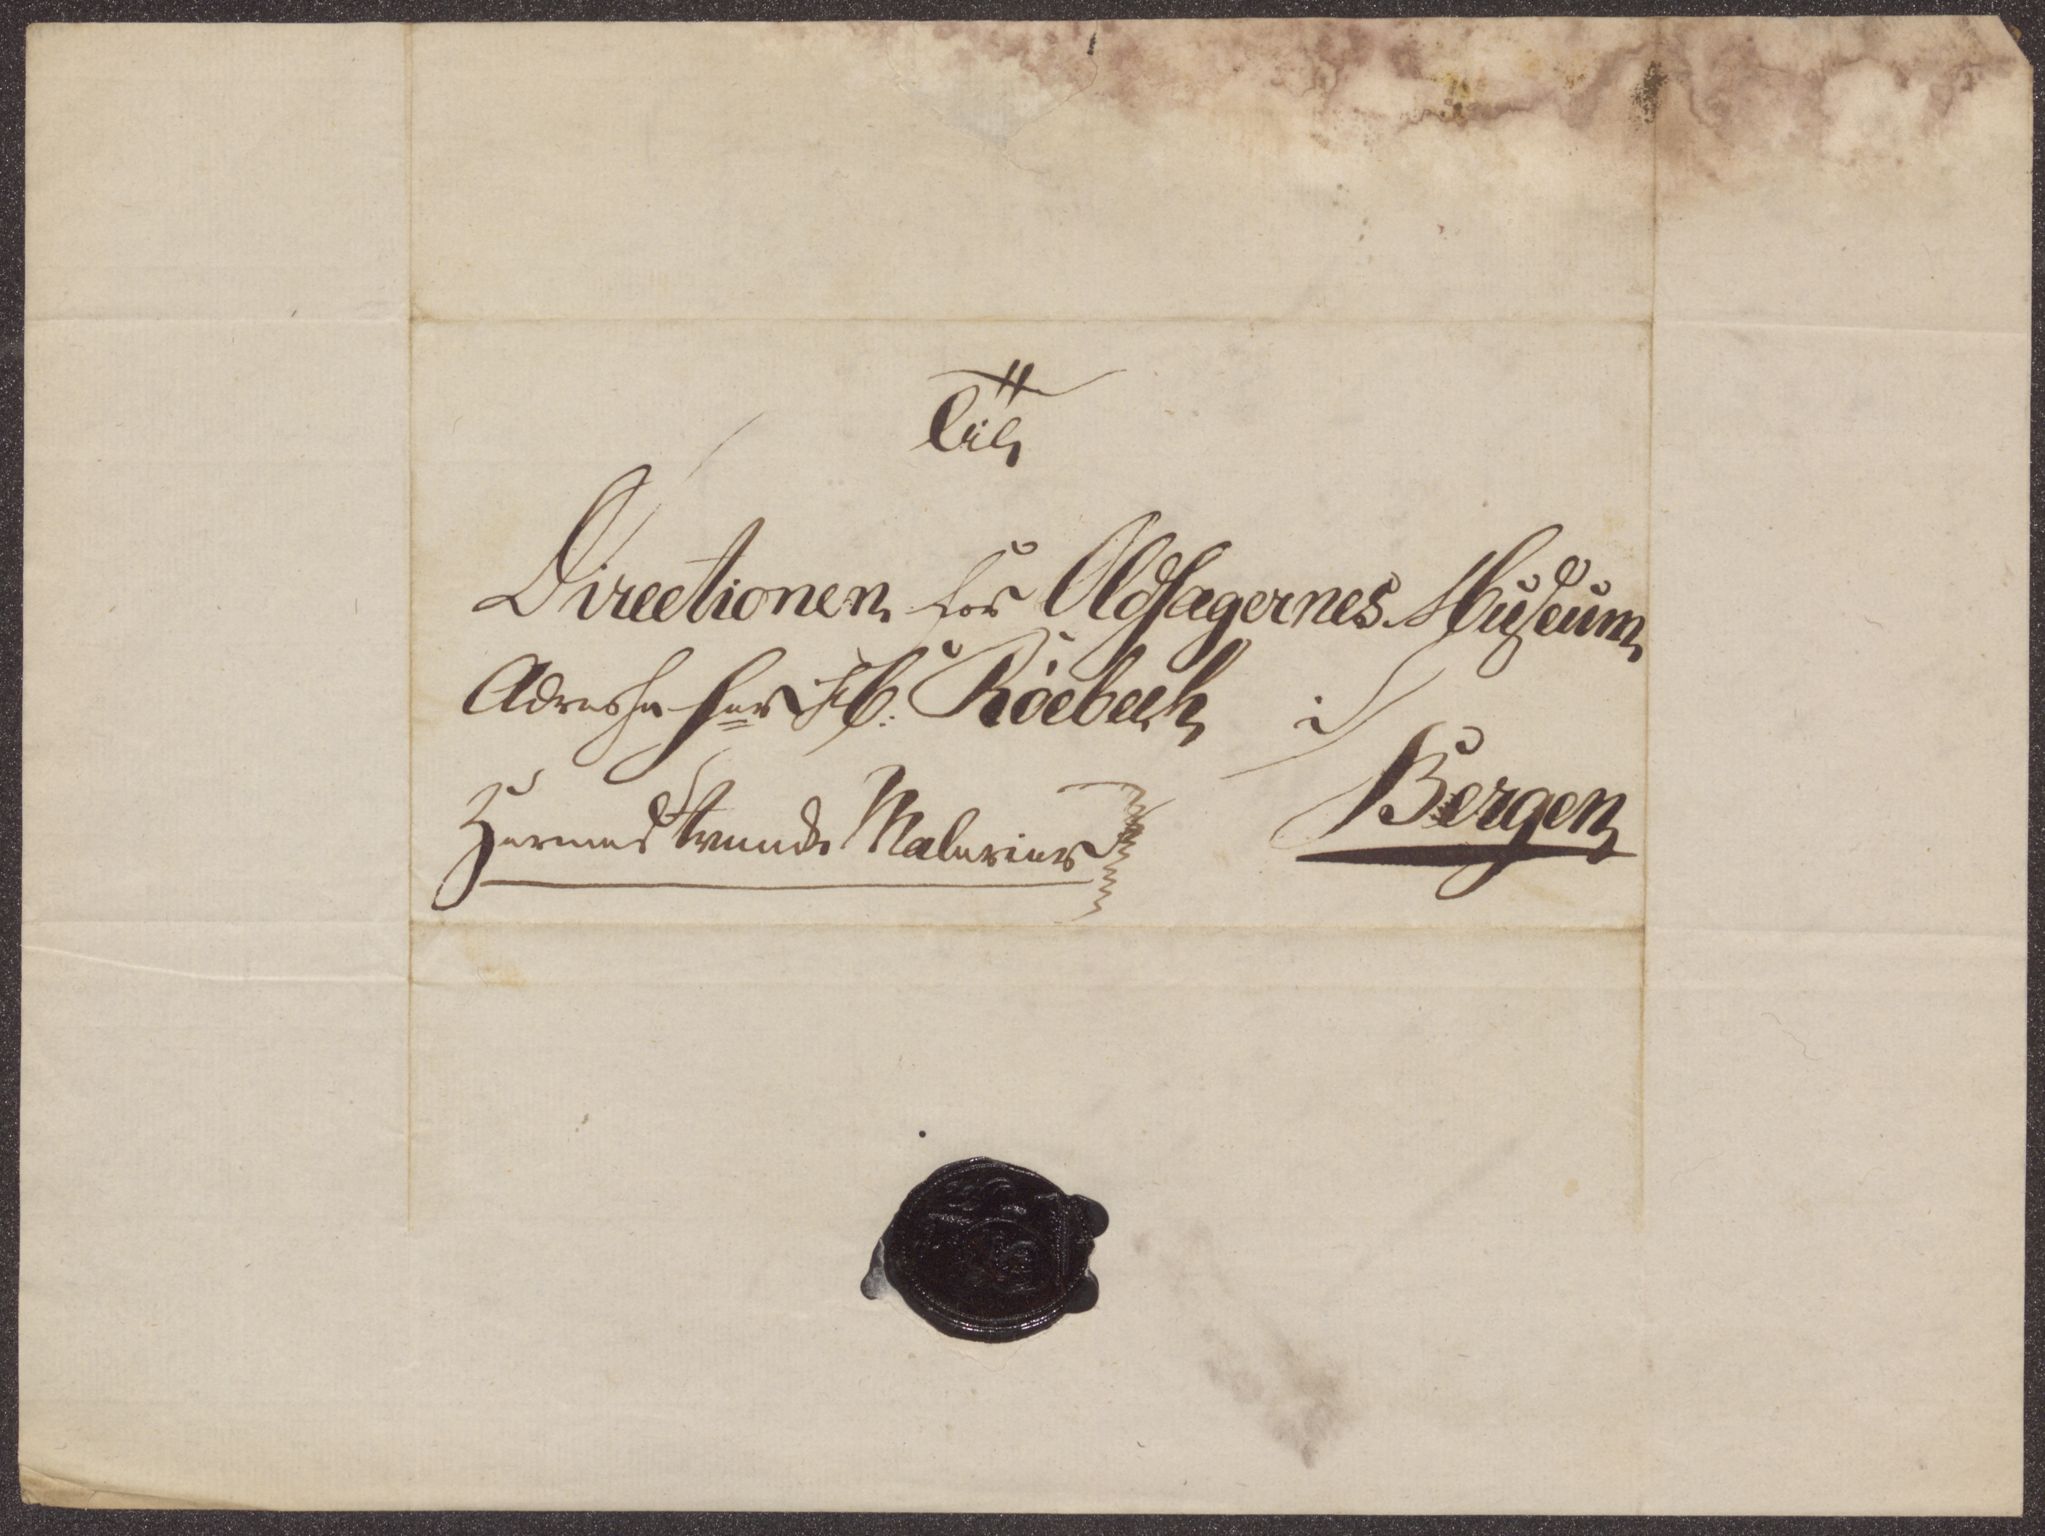 Til
Directionen for Oldsagernes Museum
Adresse Herr H. Röebeck i
Bergen
Hermed trende Malerier